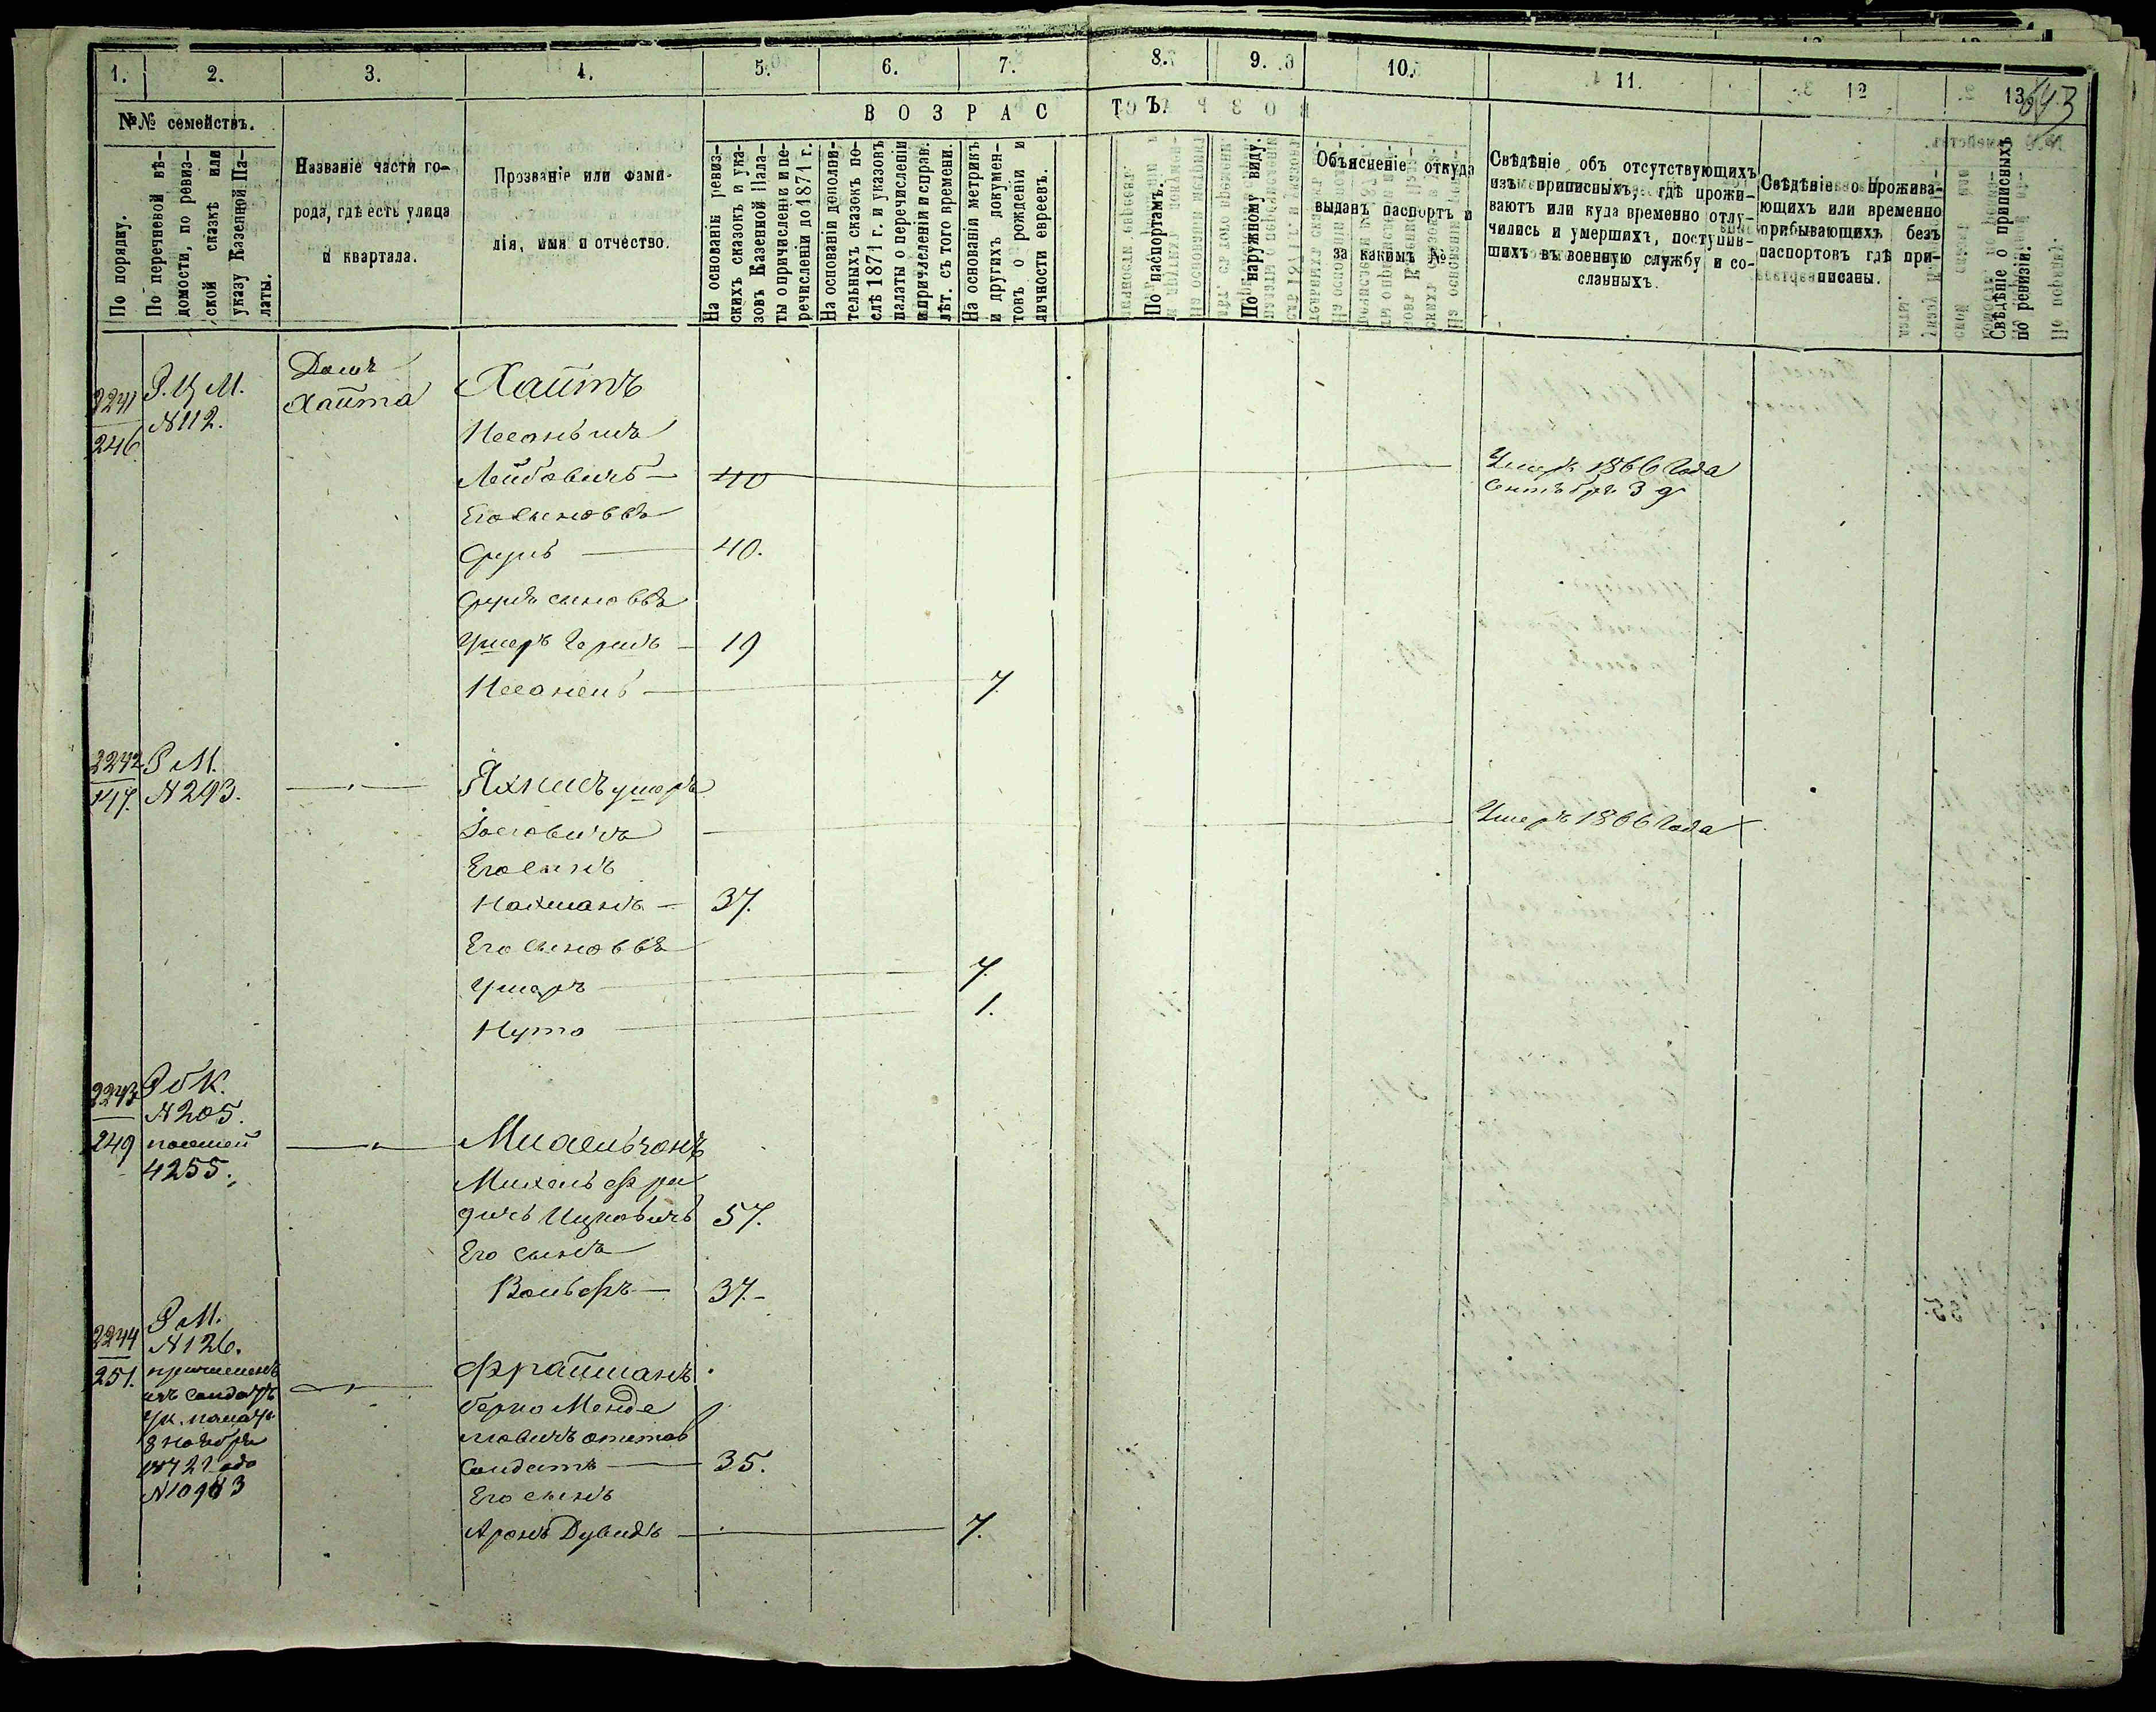 1. 2. 3. 4. 5. 6. 7. 8. 9. 10. 11. 12 13.
643
№№ семействъ.
По порядку.
По перечневой вѣ-
домости, по ревиз-
ской сказкѣ или
указу Казенной Па-
латы.
Названіе части го-
рода, гдѣ есть улица
и квартала.
Прозваніе или фами-
лія, имя и отчество.
ВОЗРАСТЪ.
На основаніи ревиз-
скихъ сказокъ и ука-
зовъ Казенной Пала-
ты о причисленіи и пе-
речисленіи до 1871 г.
На основаніи дополни-
тельныхъ сказокъ по-
слѣ 1871 г. и указовъ
палаты о перечисленіи
и причисленіи и справ.
лѣт. съ того времени.
На основаніи метрикъ
и другихъ докумен-
товъ о рожденіи и
личности евреевъ.
По паспортамъ.
По наружному виду.
Объясненіе откуда
выданъ паспортъ и
за какимъ №
Свѣдѣніе объ отсутствующихъ
изъ приписныхъ, гдѣ прожи-
ваютъ или куда временно отлу-
чились и умершихъ, поступив-
шихъ въ военную службу и со-
сланныхъ.
Свѣдѣніе о прожива-
ющихъ или временно
прибывающихъ безъ
паспортовъ гдѣ при-
писаны.
Свѣдѣніе о приписныхъ
по ревизіи.
2241
246
Р. Ц М.
№112.
Домъ
Хаита
Хаитъ
Лейбовичъ 40
Умеръ 1866 года
Сентября 3 д
Его сыновья
Сруль 40.
Сруля сыновья
Ушеръ Гершъ 19
Нусонель 7
2242
147.
Р М.
№293.
Яхнисъ Ушеръ
Іосіовичъ
Умеръ 1866 года
Его сынъ
Нахманъ 37.
Его сыновья
Ушеръ 7
Нута 1.
2243
249
Р б К.
№205.
4255.
Михель Фри
дель Ицковичъ 57.
Его сынъ
Вольфъ 37.
2244
251.
Р М.
№126.
причисленъ
изъ солдатъ
ук. палаты
8 ноября
1872 года
Фрайманъ
Берко Менде
левичъ отстав
солдатъ 35.
Его сынъ
Аронъ Дувидъ 7.